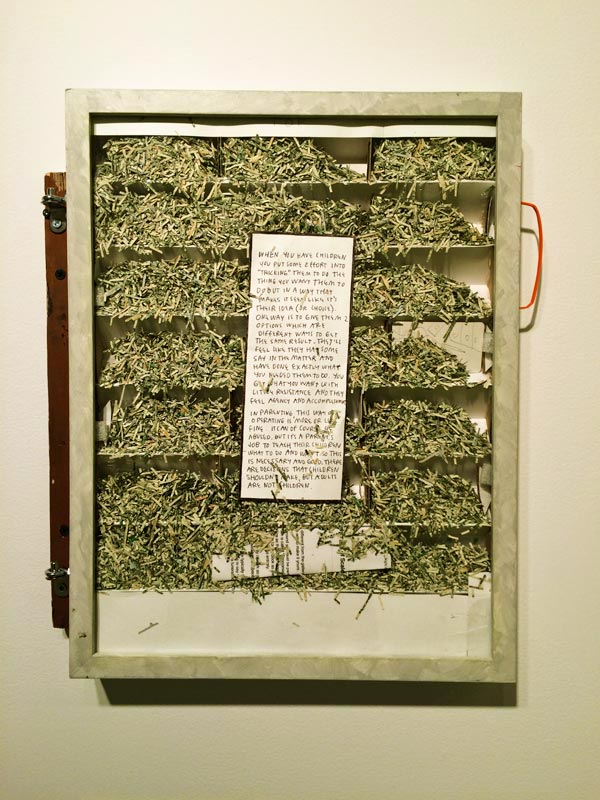 WHEN YOU HAVE CHILDREN
YOU PUT SOME EFFORT INTO
"TRICKING" THEM TO DO THE
THING YOU WANT THEM TO
DO BUT IN A WAY THAT
MAKES IT SEEM LIKE IT'S
THEIR IDEA (OR CHOICE).
ONE WAY IS TO GIVE THEM 2
OPTIONS WHICH ARE
DIFFERENT WAYS TO GET
THE SAME RESULT. THEY'LL
FEEL LIKE THEY HAD SOME
SAY IN THE MATTER AND
HAVE DONE EXACTLY WHAT
YOU NEEDED THEM TO DO. YOU
GET WHAT YOU WANT WITH
LITTLE RESISTANCE AND THEY
FEEL AGENCY AND
IN PARENTING THIS WAY OF
OPERATING IS MORE OR LESS
FINE. IT CAN OF COURSE BE
ABUSED. BUT IT'S A PARENT'S
JOB TO TEACH THEIR CHILDREN
WHAT TO DO AND SO THIS
IS NECESSARY AND GOOD. THERE
ARE DECISIONS THAT CHILDREN
SHOULDN'T MAKE, BUT ADULTS
ARE NOT CHILDREN.